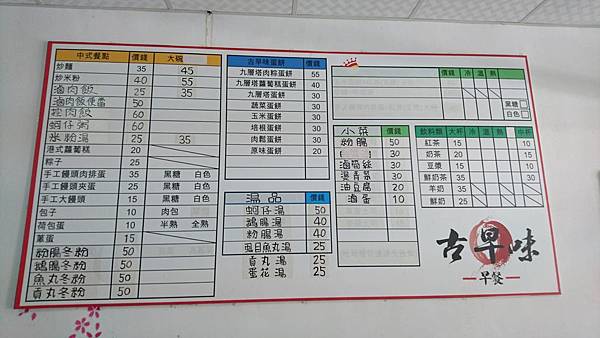 中式餐點 價錢 大碗
炒麵 35 45
炒米粉 40 55
滷肉飯 25 35
滷肉飯便當 50
控肉飯 60
蚵仔粥 60
米粉湯 25 35
港式蘿蔔糕 20
粽子 25
手工饅頭肉排蛋 35 黑糖 白色
手工饅頭夾蛋 25 黑糖 白色
手工大饅頭 15 黑糖 白色
包子 10 肉包
荷包蛋 10 半熟 全熟
蔥蛋 15
粉腸冬粉 50
鵝腸冬粉 50
魚丸冬粉 50
貢丸冬粉 50
古早味蛋餅 價錢
九層塔肉粽蛋餅 55
九層塔蘿蔔糕蛋餅 40
九層塔蛋餅 30
蔬菜蛋餅 30
玉米蛋餅 30
培根蛋餅 30
肉鬆蛋餅 30
原味蛋餅 20
湯品 價錢
蚵仔湯 50
鵝腸湯 40
粉腸湯 40
虱目魚丸湯 25
貢丸湯 25
蛋花湯 25
價錢 冷 溫 熱
黑糖
白色
小菜 價錢
粉腸 30
30
滷筍絲 30
燙青菜 30
油豆腐 20
滷蛋 10
飲料類 大杯 冷 溫 熱 中杯
紅茶 15 10
奶茶 20 15
豆漿 15 10
鮮奶茶 35 30
羊奶 35
鮮奶 35
古早味
早餐